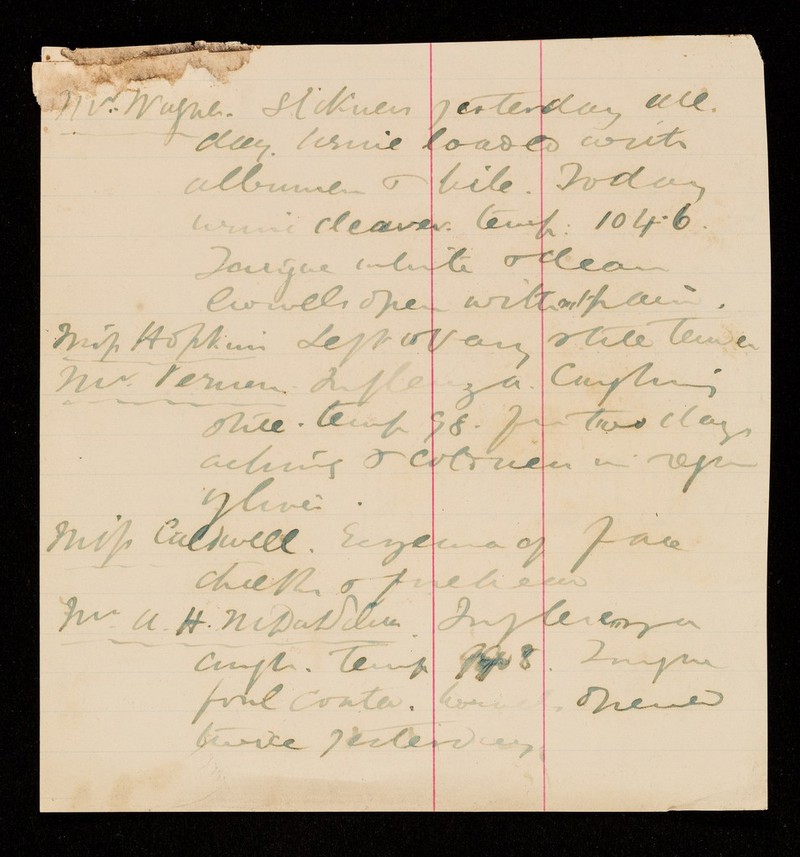 Mr. Wagner. Sickness yesterday all
day. Urine loaded with
albumen & bile. Today
urine clearer. temp. 104.6.
Tongue white & clean
bowels open without pain.
Miss Hopkins Left ovary still tender
Mr. Vernon. Influenza. Coughing
still. temp 98. for two days
aching & coldness in region
of liver.
Miss Caldwell. Eczema of face
cheeks & forehead
Mr. A. H. Influenza
cough. Temp Tongue
foul coated. bowels opened
twice yesterday